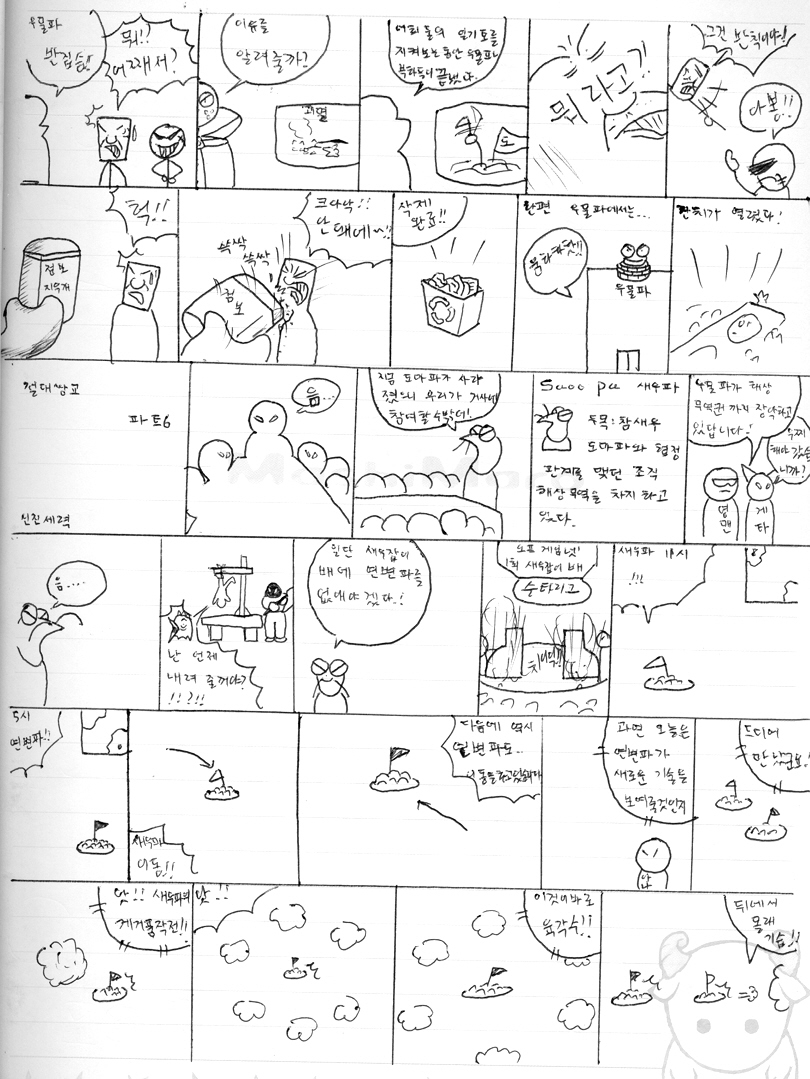 우물파
반칙승!!
뭐!!
어째서?
이유를
알려줄까?
지켜보는 동안 우물파
부하들이 끝냈다.
도
뭐라고?!
그건 반칙이야!!
나봉!!
헉!!
점보
지우개
쓱싹
쓱싹
점보
크아악!!
난 왜에~!!
삭제
완료!!
한편 우물파에서는...
우물파
잔치가 열렸다!
절대쌍교
파트6
신진세력
음...
지금 도마파가 사라
졌으니 우리가 가서
참여할수밖에!
Saoo pa 새우파
두목: 참새우
도마파와 협정
관계를 맺던 조직
해상무역을 차지하고
있다.
우물파가 해상
무역권까지 장악하고
있답니다!
어찌
해야 갔습
니까?
영
맨
게
타
음....
난 언제
내려줄꺼야?
!!?!!
일단 새우잡이
배에 연변파를
없애야겠다!
1회 새우잡이배
슈타리그
새우파 11시
!!!
5시
연변파!!
새우파
이동!!
다음에 역시
연변파도..
과연 오늘은
연변파가
새로운 기술을
보여줄것인지
드디어
만났군요!
앗!! 새우파의
게거품작전!!
앗!!
이것이 바로
육각수!!
뒤에서
몰래
기습!!